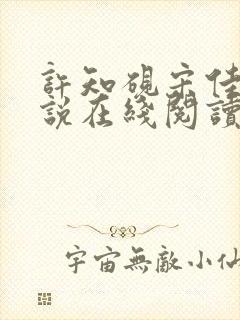 許知硯宋佳
說在綫閱讀
宇宙無敵小仙